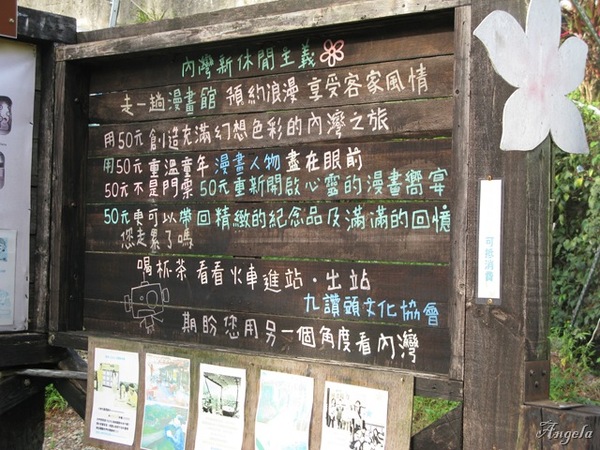 內灣新休閒主義
走一趟漫畫館 預約浪漫 享受客家風情
用50元創造充滿幻想色彩的內灣之旅
用50元重溫童年漫畫人物盡在眼前
50元不是門票 50元重新開啟心靈的漫畫饗宴
50元更可以帶回精緻的紀念品及滿滿的回憶
您走累了嗎
喝杯茶 看看火車進站·出站
九讚頭文化協會
期盼您用另一個角度看內灣
可抵消費
Angela